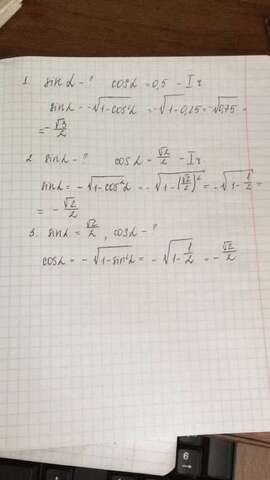 1. sinα - ? cosα = 0,5 - I г
sinα = -√(1-cos²α) = -√(1-0,25) = -√0,75 =
= -√3/2
2. sinα - ? cosα = √2/2 - I г
sinα = -√(1-cos²α) = -√(1-(√2/2)²) = -√(1-1/2) =
= -√2/2
3. sinα = √2/2, cosα - ?
cosα = -√(1-sin²α) = -√(1-1/2) = -√2/2
6